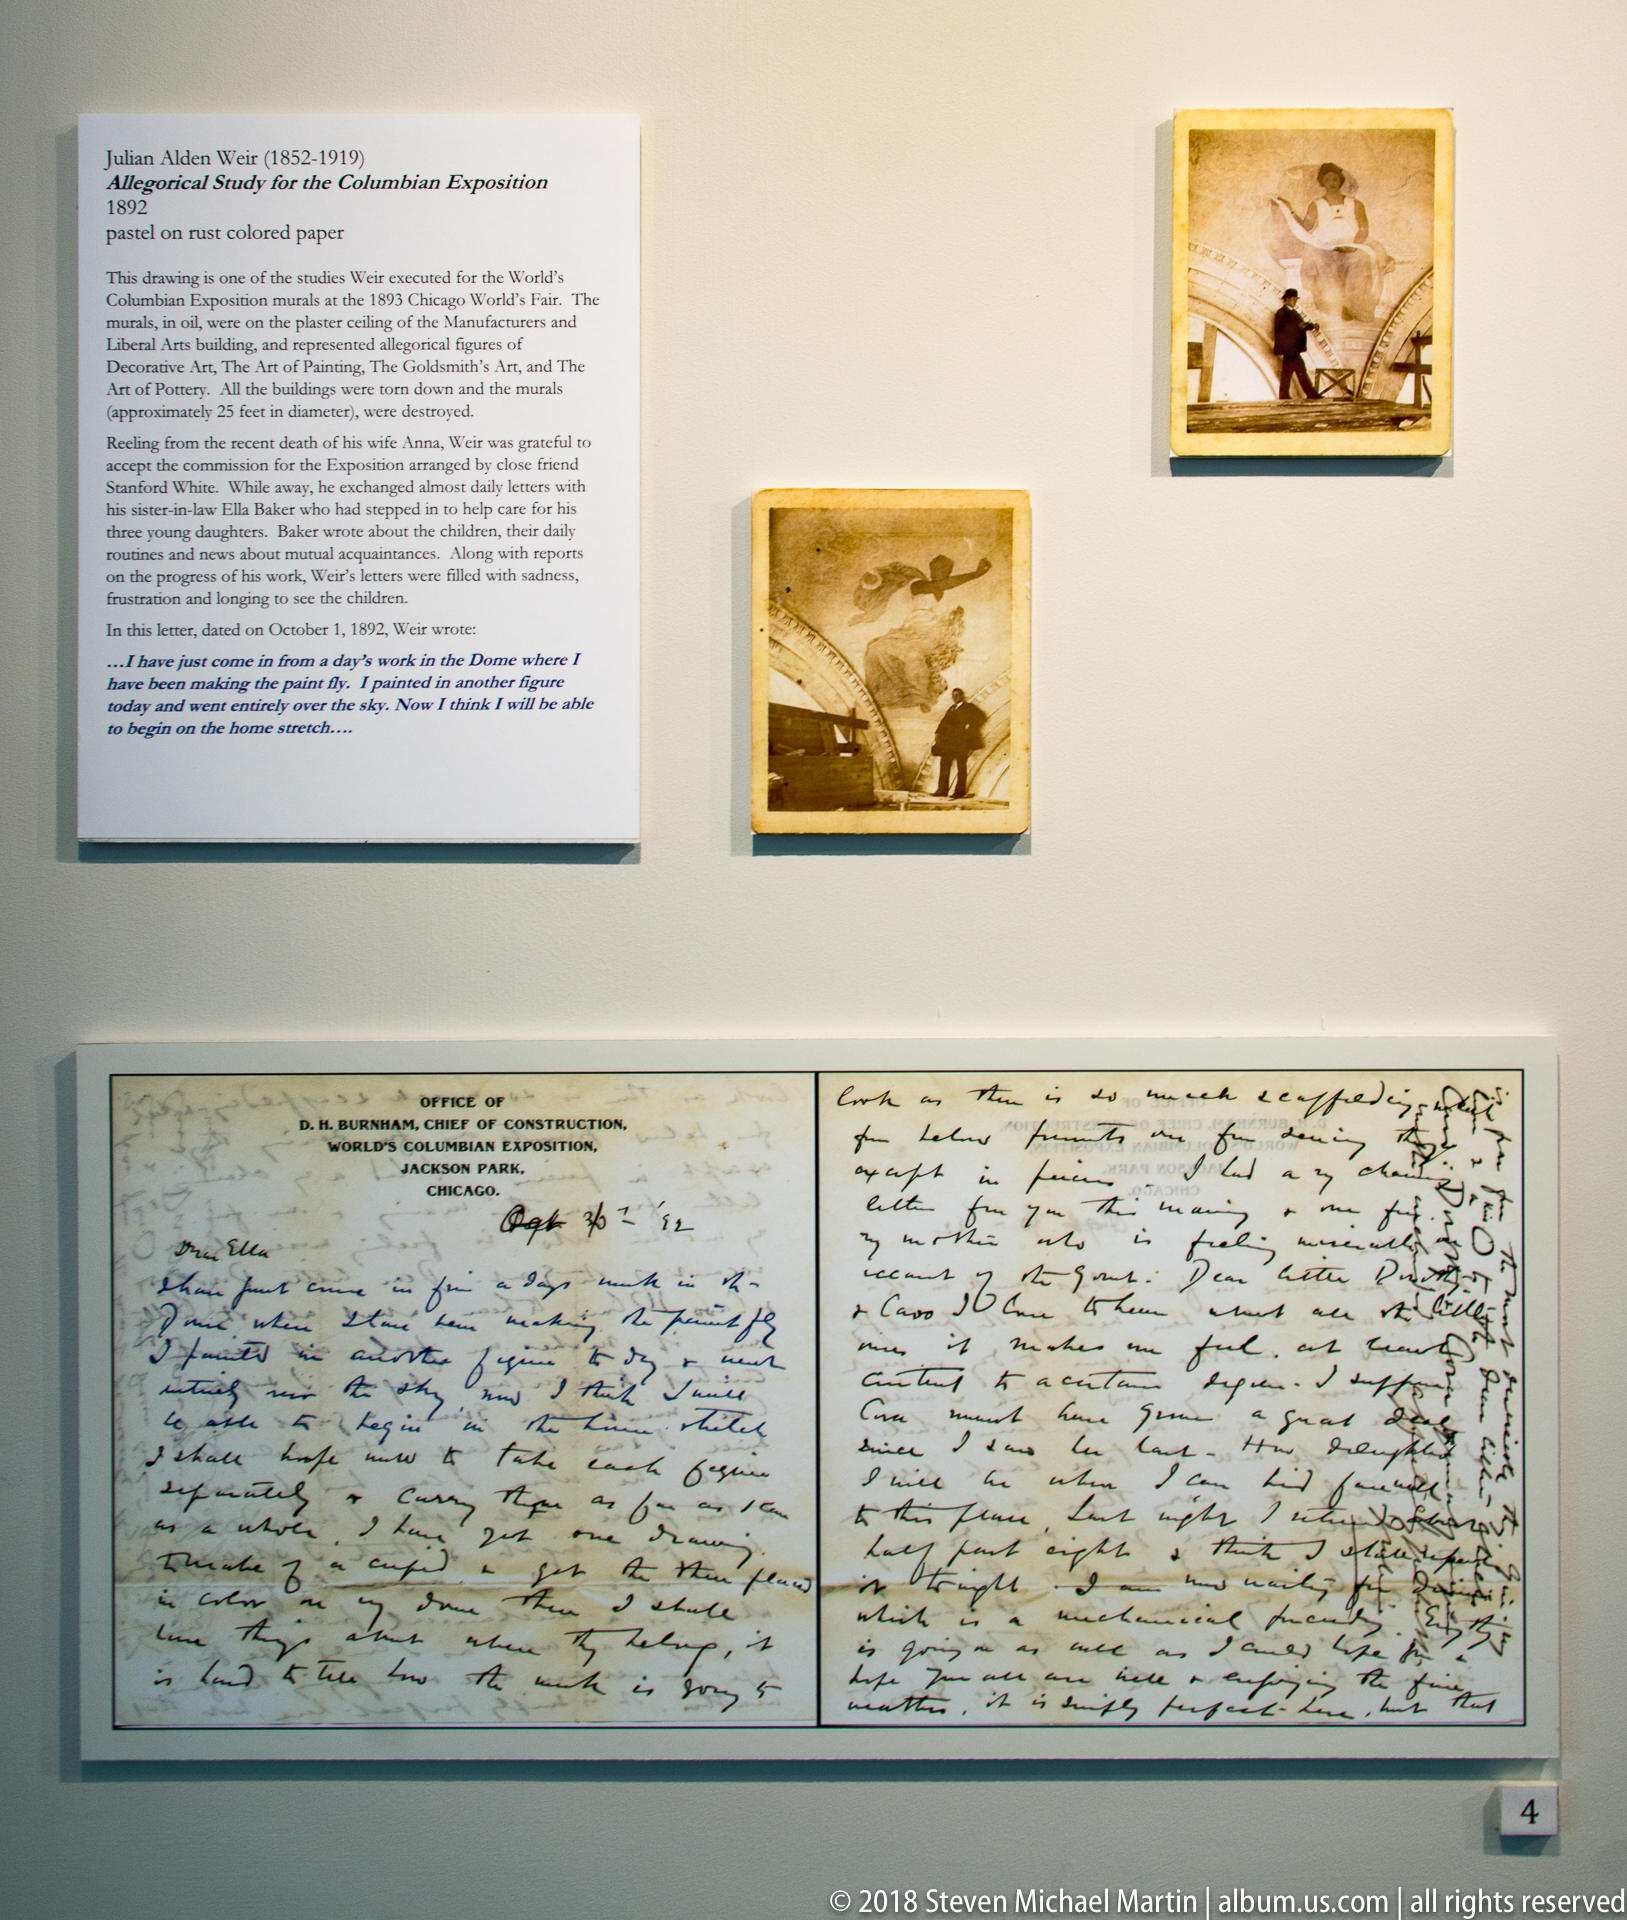 Julian Alden Weir (1852-1919)
Allegorical Study for the Columbian Exposition
1892
pastel on rust colored paper
This drawing is one of the studies Weir executed for the World's
Columbian Exposition murals at the 1893 Chicago World's Fair. The
murals, in oil, were on the plaster ceiling of the Manufacturers and
Liberal Arts building, and represented allegorical figures of
Decorative Art, The Art of Painting, The Goldsmith's Art, and The
Art of Pottery. All the buildings were torn down and the murals
(approximately 25 feet in diameter), were destroyed.
Reeling from the recent death of his wife Anna, Weir was grateful to
accept the commission for the Exposition arranged by close friend
Stanford White. While away, he exchanged almost daily letters with
his sister-in-law Ella Baker who had stepped in to help care for his
three young daughters. Baker wrote about the children, their daily
routines and news about mutual acquaintances. Along with reports
on the progress of his work, Weir's letters were filled with sadness,
frustration and longing to see the children.
In this letter, dated on October 1, 1892, Weir wrote:
…I have just come in from a day's work in the Dome where I
have been making the paint fly. I painted in another figure
today and went entirely over the sky. Now I think I will be able
to begin on the home stretch….
OFFICE OF
D. H. BURNHAM, CHIEF OF CONSTRUCTION,
WORLD'S COLUMBIAN EXPOSITION,
JACKSON PARK,
CHICAGO.
'92
Dear Ella
I have just come in from a days work in the
Dome where I have been making the paint fly
I painted in another figure to day & went
entirely over the sky, now I think I will
be able to begin on the home stretch
I shall hope now to take each figure
separately & carry them as far as I can
as a whole. I have got one drawing
to make of a cupid & get the three placed
in color on my dome then I shall
have things about where they belong, it
is hard to tell how the work is going to
look as there is so much scaffolding
from below prevents one from seeing
except in pieces. I had a charming
letter from you this morning & one from
my mother who is feeling miserable
account of the Gout. Dear little Dorothy
& Caro I love to hear what all the little
ones it makes me feel, at least
content to a certain degree. I suppose
Cora must have grown a great deal
since I saw her last. How delighted
I will be when I can bid farewell
to this place. Last night I retired
half past eight & think I shall repeat
it tonight. I am now waiting for
which is a mechanical
is going on as well as I could hope for I
hope you all are well & enjoying the fine
weather, it is simply perfect here, but that
4
© 2018 Steven Michael Martin | album.us.com | all rights reserved